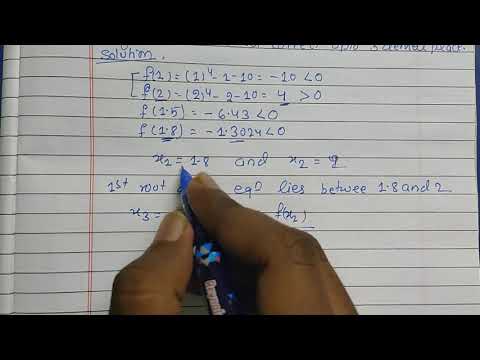 Solution.
f(1) = (1)⁴ - 1 - 10 = -10 < 0
f(2) = (2)⁴ - 2 - 10 = 4 > 0
f(1.5) = - 6.43 < 0
f(1.8) = - 1.3024 < 0
x₁ = 1.8 and x₂ = 2
1st root eqⁿ lies betwee 1.8 and 2
x₃ = f(x₂)